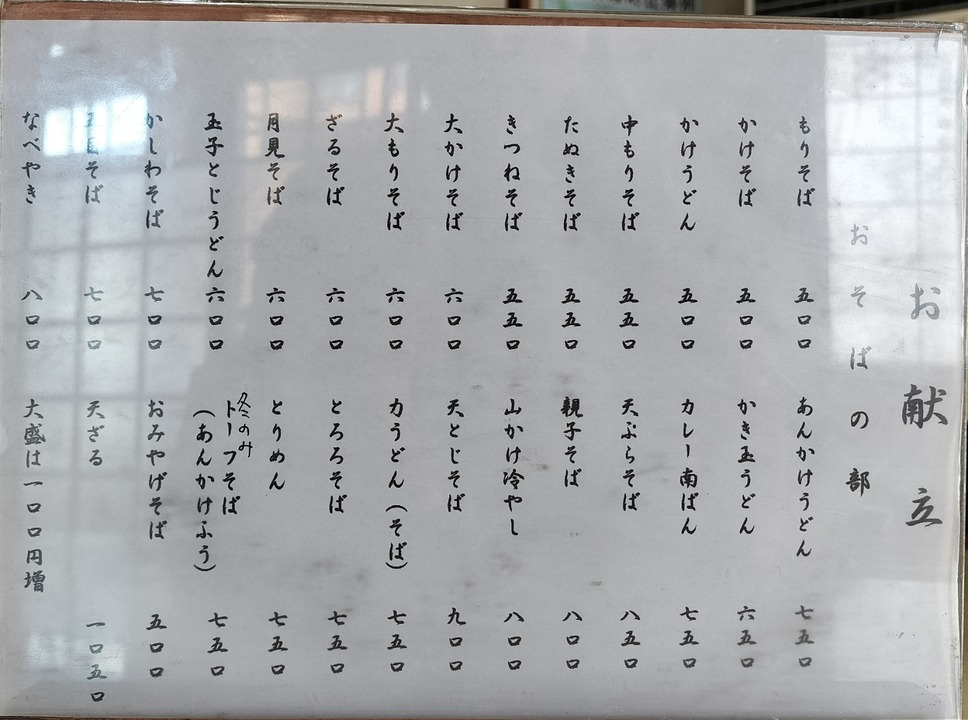 お献立
おそばの部
もりそば 五〇〇
かけそば 五〇〇
かけうどん 五〇〇
中もりそば 五五〇
たぬきそば 五五〇
きつねそば 五五〇
大かけそば 六〇〇
大もりそば 六〇〇
ざるそば 六〇〇
月見そば 六〇〇
玉子とじうどん 六〇〇
かしわそば 七〇〇
そば 七〇〇
なべやき 八〇〇
あんかけうどん 七五〇
かき玉うどん 六五〇
カレー南ばん 七五〇
天ぷらそば 八五〇
親子そば 八〇〇
山かけ冷やし 八〇〇
天とじそば 九〇〇
力うどん(そば) 七五〇
とろろそば 七五〇
とりめん 七五〇
冬のみ
トーフそば
(あんかけふう) 七五〇
おみやげそば 五〇〇
天ざる 一〇五〇
大盛は一〇〇円増